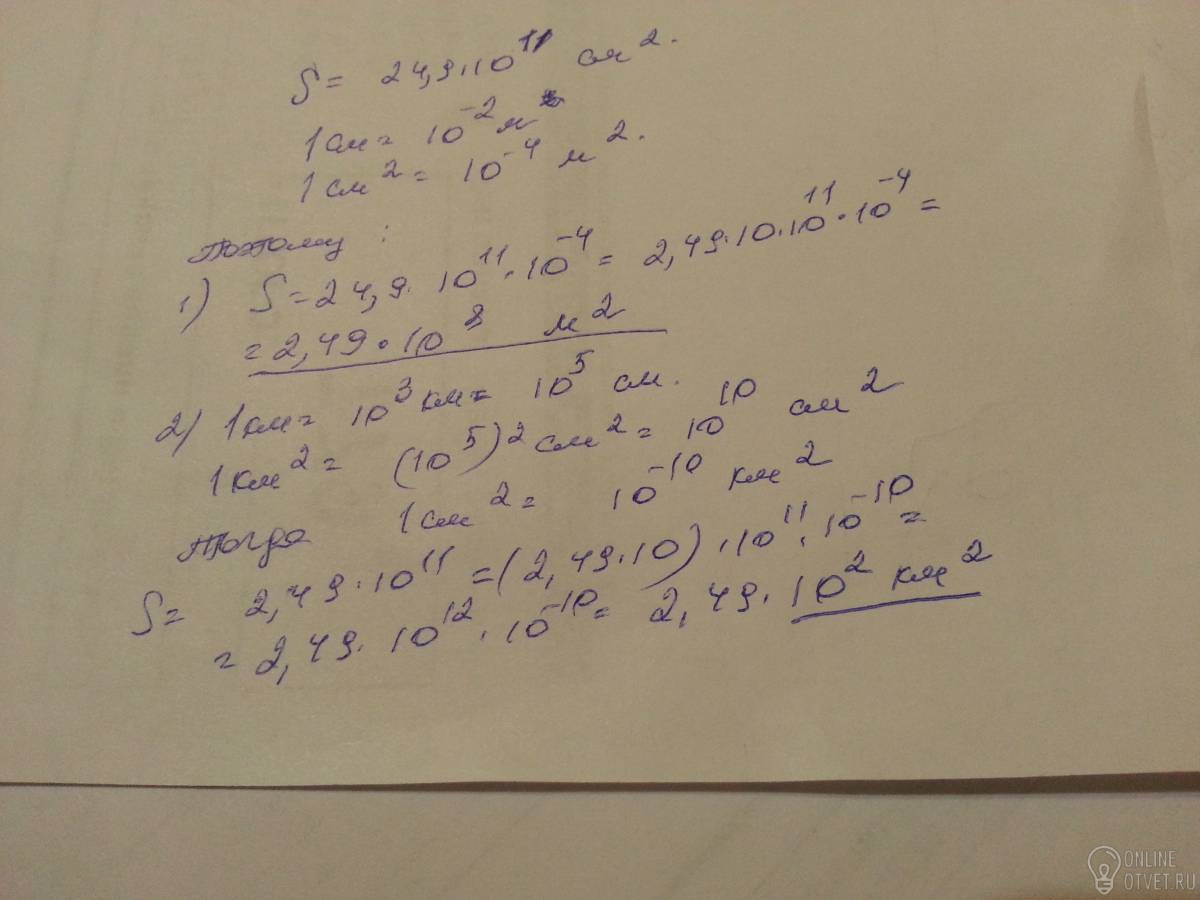 S = 24,9·10¹¹ см².
1 см = 10⁻² м
1 см² = 10⁻⁴ м².
Поэтому :
1) S = 24,9·10¹¹·10⁻⁴ = 2,49·10·10¹¹·10⁻⁴ =
= 2,49·10⁸ м²
2) 1 км = 10³ км = 10⁵ см.
1 км² = (10⁵)² см² = 10¹⁰ см²
1 см² = 10⁻¹⁰ км²
Тогда
S = 2,49·10¹¹ = (2,49·10)·10¹¹·10⁻¹⁰ =
= 2,49·10¹²·10⁻¹⁰ = 2,49·10² км²
ONLINE
OTVET.RU